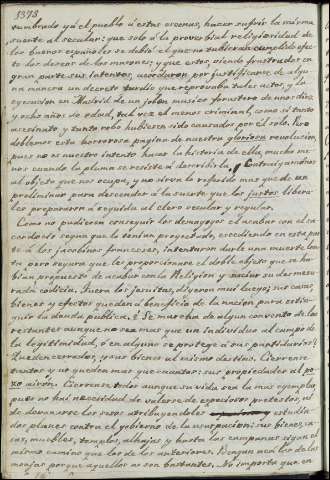 1378
tumbrado ya el pueblo á estas escenas, hacer sufrir la misma
suerte al secular; que solo á la proverbial religiosidad de
los buenos españoles se debia el que no tubiera cumplido efec-
to los deseos de los masones; y que estos, viendo frustrados en
gran parte sus intentos, acordaron por justificarse de algu-
na manera un decreto tardio que reprovaba tales actos, y la
egecucion en Madrid de un joben musico forastero de unos diez
y ocho años de edad, tal vez el menos criminal, como si tanto
asesinato y tanto robo hubiesen sido causados por el solo. Pero
doblemos esta horrorosa pagina de nuestra gloriosa revolucion,
pues no es nuestro intento hacer la historia de ella, mucho me-
nos cuando la pluma se resiste á escribirla, y contraigamonos
al objeto que nos ocupa, y no sirva lo referido mas que de un
preliminar para descender á la suerte que los justos libera-
les prepararon á seguida al clero secular y regular.
Como no pudieron conseguir los demagogos el acabar con el sa-
cerdocio segun que lo tenian proyectado, escediendo en esta par-
te á los jacobinos franceses, intentaron darle una muerte len-
ta pero segura que les proporcionare el doble objeto que se ha-
bian propuesto de acabar con la Religion y saciar su desmesu-
rada codicia. Fuera los jesuitas, digeron mui luego; sus casas,
bienes y efectos quedan á beneficio de la nacion para estin-
guir la deuda publica. ¿Se marcha de algun convento de los
restantes aunque no sea mas que un individuo al campo de
la legitimidad, ó en alguno se protege á sus partidarios?
Queden cerrados, y sus bienes al mismo destino. Cierrense
tantos y no queden mas que cuantos: sus propiedades al po-
zo airón. Cierrense todos aunque su vida sea la mas egemplar,
pues no hai necesidad de valerse de especiosos pretestos, ni
de devanarse los sesos atribuyendoles estudia-
dos planes contra el gobierno de la usurpacion: sus bienes, ca-
sas, muebles, templos, alhajas y hasta las campanas sigan el
mismo camino que los de los anteriores. Vengan ahora los de las
monjas porque aquellos no son bastantes. No importa que en